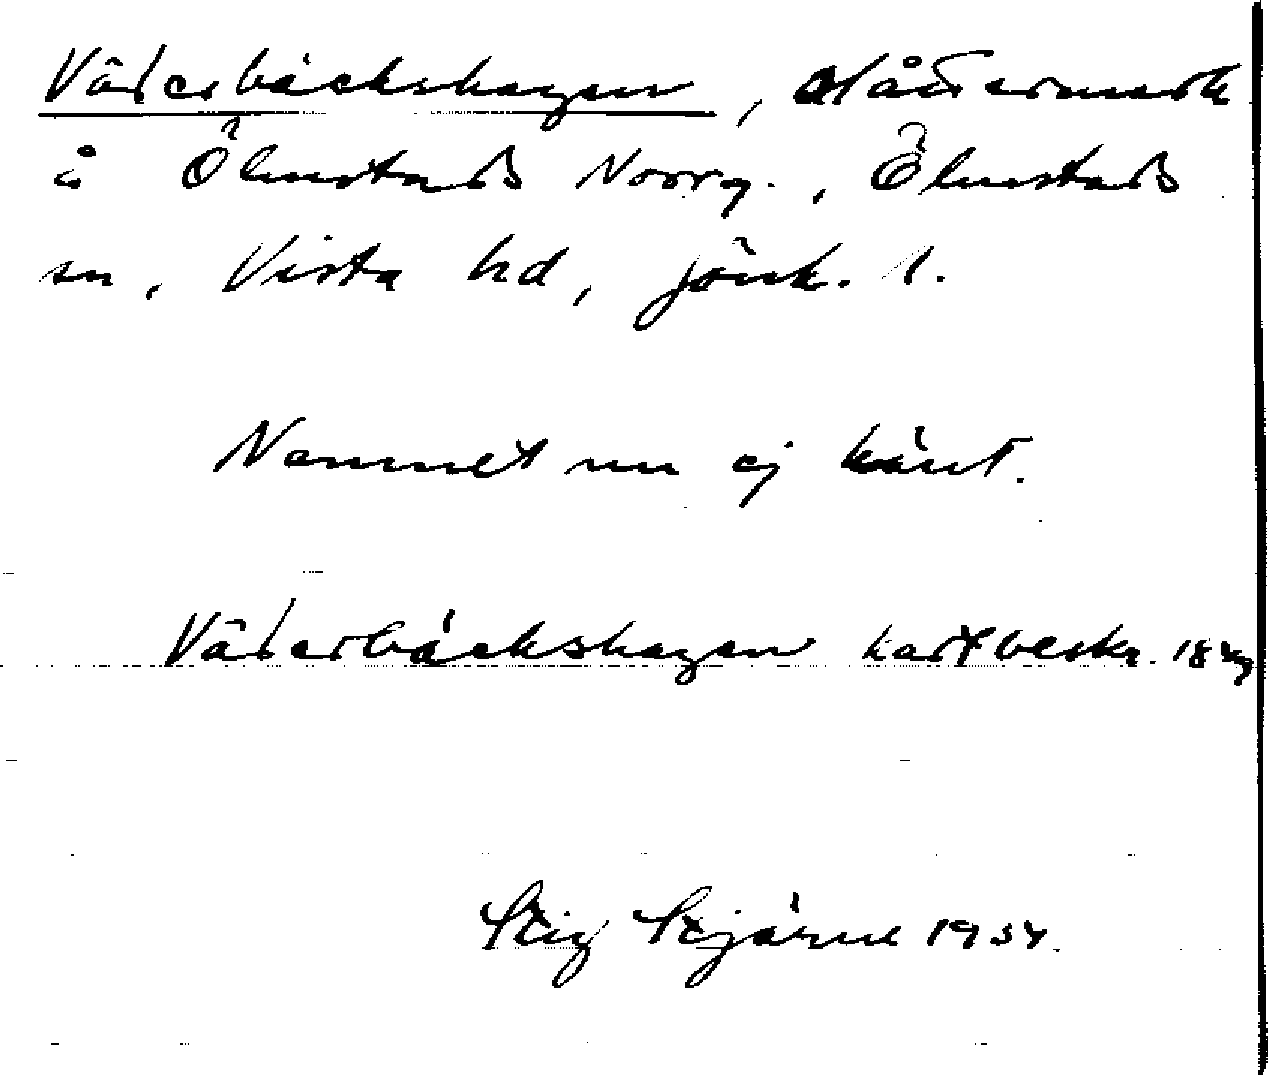 Väderbäckshagen, slåttermark
å Ölmstads Norrg., Ölmstads
sn, Vista hd, Jönk. l.
Namnet nu ej känt.
Väderbäckshagen kartbeskr.
Stig Stjärne 1934.